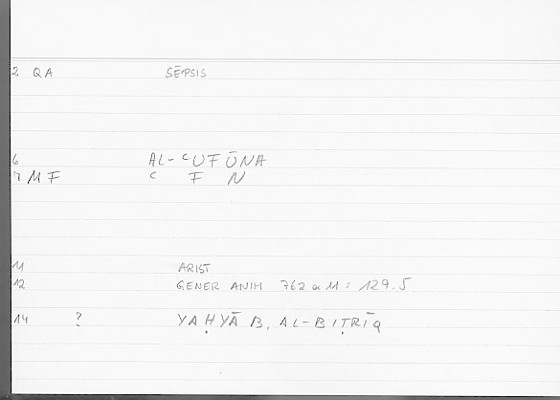 2 QA SĒPSIS
6 AL-ᶜUFŪNA
7 MF ᶜ F N
11 ARIST
12 GENER ANIM 762 a 11 : 129.5
14 ? YAḤYĀ B. AL-BIṬRĪQ